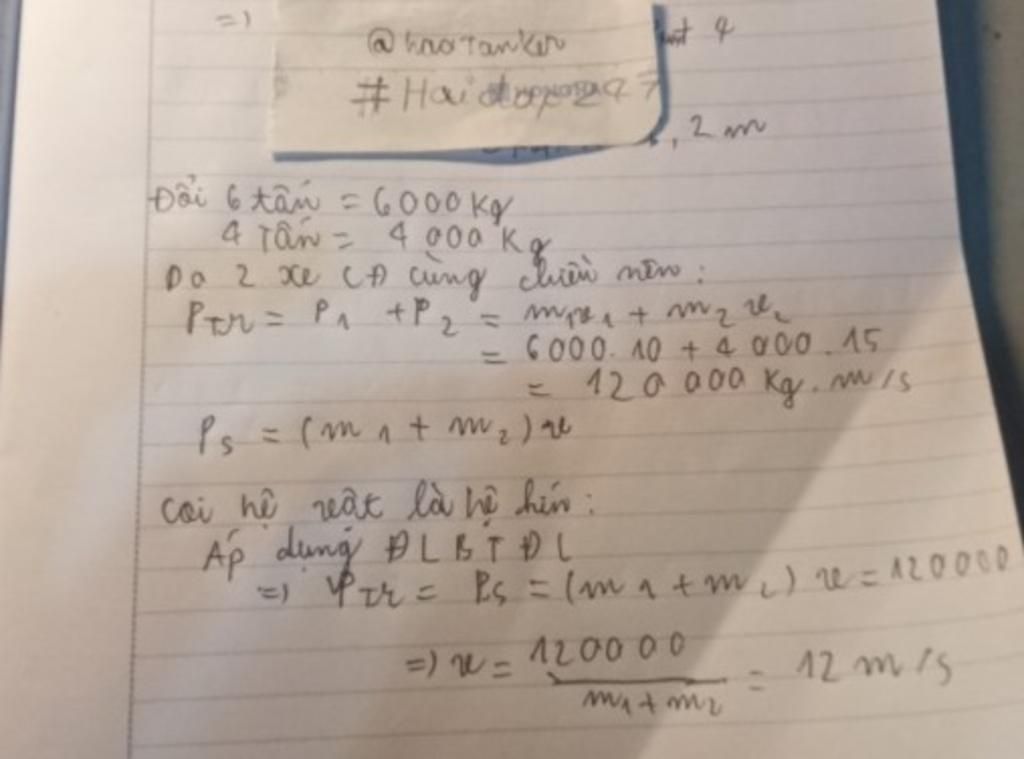 =)
@haotanker
#Hai
4
, 2 m
Đổi 6 tấn = 6000 Kg
4 Tấn = 4 000 Kg
Do 2 xe CĐ cùng chiều nên:
PTr = P1 + P2 = m1v1 + m2v2
= 6000.10 + 4 000.15
= 120 000 Kg.m/s
Ps = (m1 + m2)v
Coi hệ vật là hệ kín:
Áp dụng ĐLBTĐL
=) PTr = Ps = (m1 + m2) v = 120000
=) v = 120000 / m1 + m2 = 12 m/s